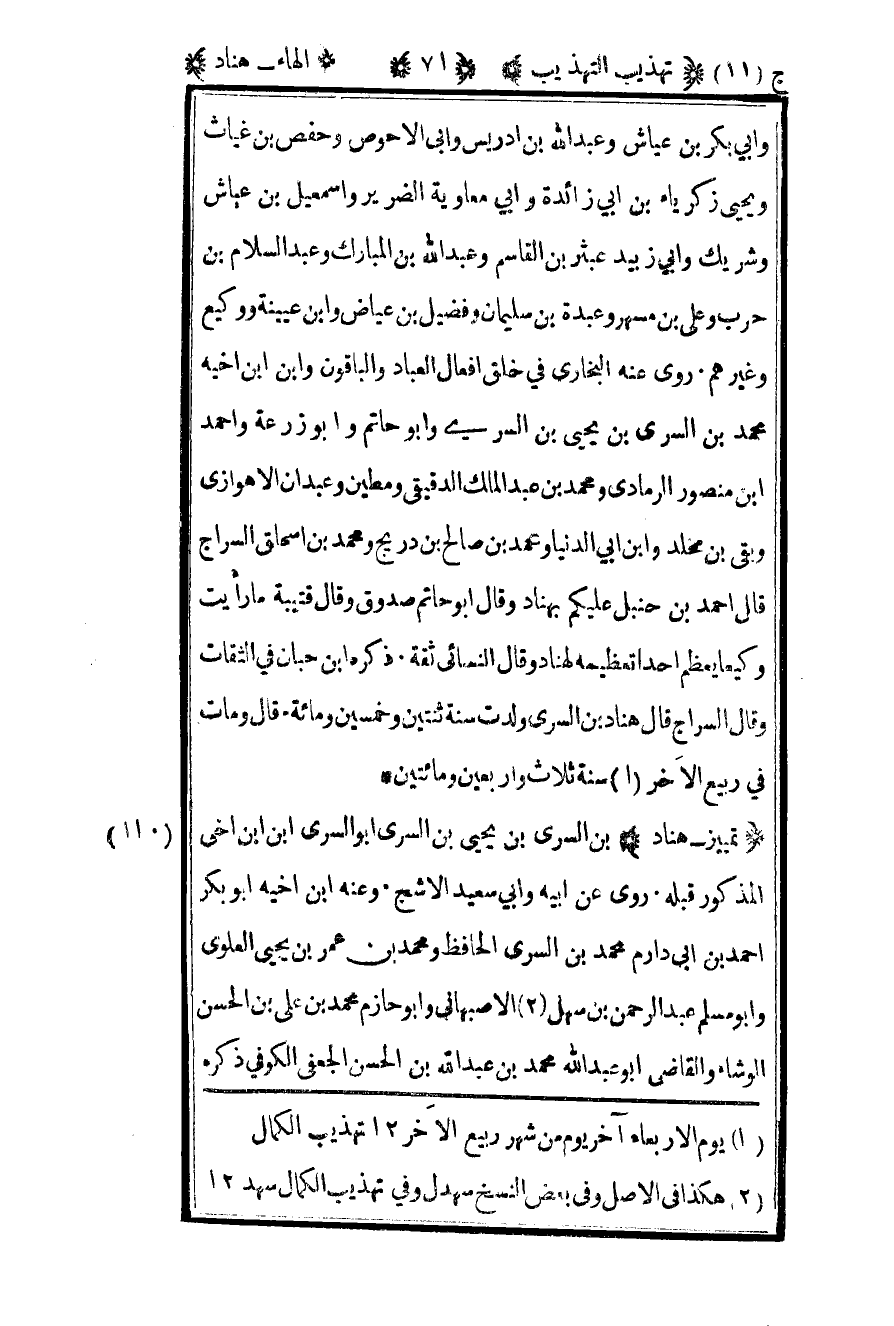 ج (١١) ﴿ تهذيب التهذيب ﴾ ﴿ ٧١ ﴾ ﴿ الهاء ـ هناد ﴾
وابي بكر بن عياش وعبدالله بن ادريس وابى الاحوص وحفص بن غياث
ويحيى زكرياء بن ابي زائدة وابي معاوية الضرير واسمعيل بن عياش
وشريك وابي زبيد عبثر بن القاسم وعبدالله بن المبارك وعبدالسلام بن
حرب وعلى بن مسهر وعبدة بن سليمان وفضيل بن عياض وابن عيينة ووكيع
وغيرهم · روى عنه البخارى في خلق افعال العباد والباقون وابن ابن اخيه
محمد بن السرى بن يحيى بن السرى وابو حاتم وابوزرعة واحمد
ابن منصور الرمادى ومحمد بن عبدالملك الدقيقى ومطين وعبدان الاهوازى
وبقى بن مخلد وابن ابي الدنيا وعمد بن صالح بن دريج ومحمد بن اسحاق السراج
قال احمد بن حنبل عليكم بهناد وقال ابوحاتم صدوق وقال قتيبة مارأيت
وكيعا يعظم احدا تعظيمه لهناد وقال النسائى ثقة · ذكره ابن حبان في الثقات
وقال السراج قال هناد بن السرى ولدت سنة ثنتين وخمسين ومائة · قال ومات
في ربيع الآخر (١) سنة ثلاث واربعين ومائتين *
﴿ تمييز ـ هناد ﴾ بن السرى بن يحيى بن السرى ابوالسرى ابن ابن اخى (١١٠)
المذكور قبله · روى عن ابيه وابي سعيد الاشج · وعنه ابن اخيه ابو بكر
احمد بن ابي دارم محمد بن السرى الحافظ ومحمد بن عمر بن يحيى العلوى
وابومسلم عبدالرحمن بن سهل (٢) الاصبهانى وابوحازم محمد بن على بن الحسن
الوشاء والقاضى ابوعبدالله محمد بن عبدالله بن الحسن الجعفى الكوفي ذكره
(١) يوم الاربعاء آخر يوم من شهر ربيع الآخر ١٢ تهذيب الكمال
(٢) هكذا فى الاصل وفى بعض النسخ سهدل وفي تهذيب الكمال سهد ١٢